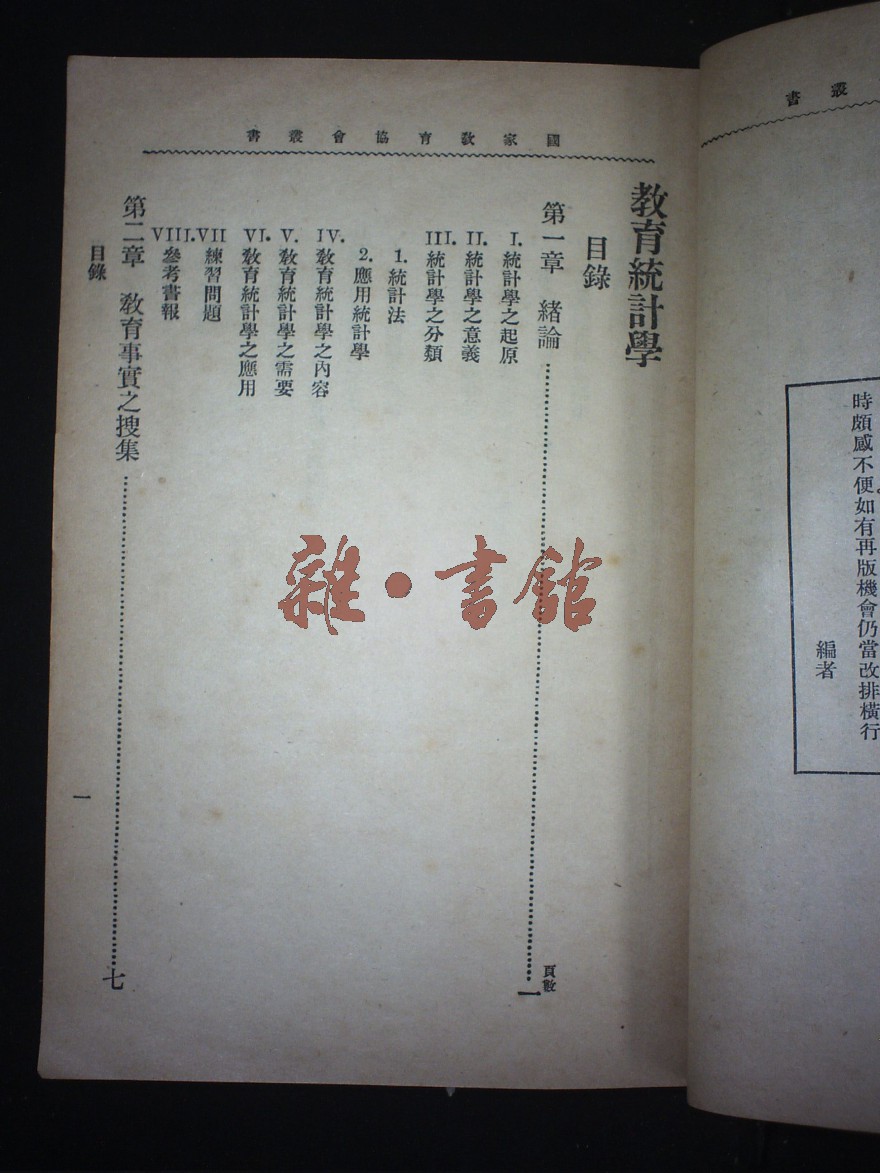 叢書
時頗感不便如有再版機會仍當改排橫行
編者
國家教育協會叢書
教育統計學
目錄
頁數
第一章 緒論 一
I. 統計學之起原
II. 統計學之意義
III. 統計學之分類
1. 統計法
2. 應用統計學
IV. 教育統計學之內容
V. 教育統計學之需要
VI. 教育統計學之應用
VII 練習問題
VIII. 參考書報
第二章 教育事實之搜集 七
目錄
一
雜·書館